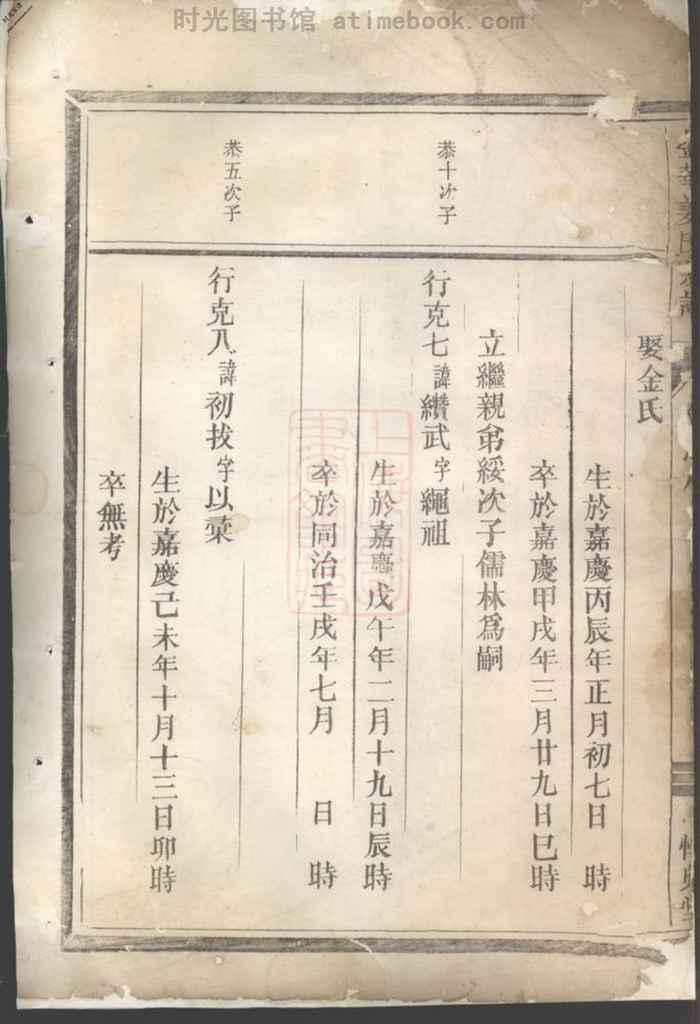 时光图书馆 atimebook.com
娶金氏
生於嘉慶丙辰年正月初七日 時
卒於嘉慶甲戌年三月廿九日巳時
立繼親弟綏次子儒林為嗣
恭十次子
行克七諱纘武字繩祖
生於嘉慶戊午年二月十九日辰時
卒於同治壬戌年七月 日 時
恭五次子
行克八諱初拔字以彙
生於嘉慶己未年十月十三日卯時
卒無考